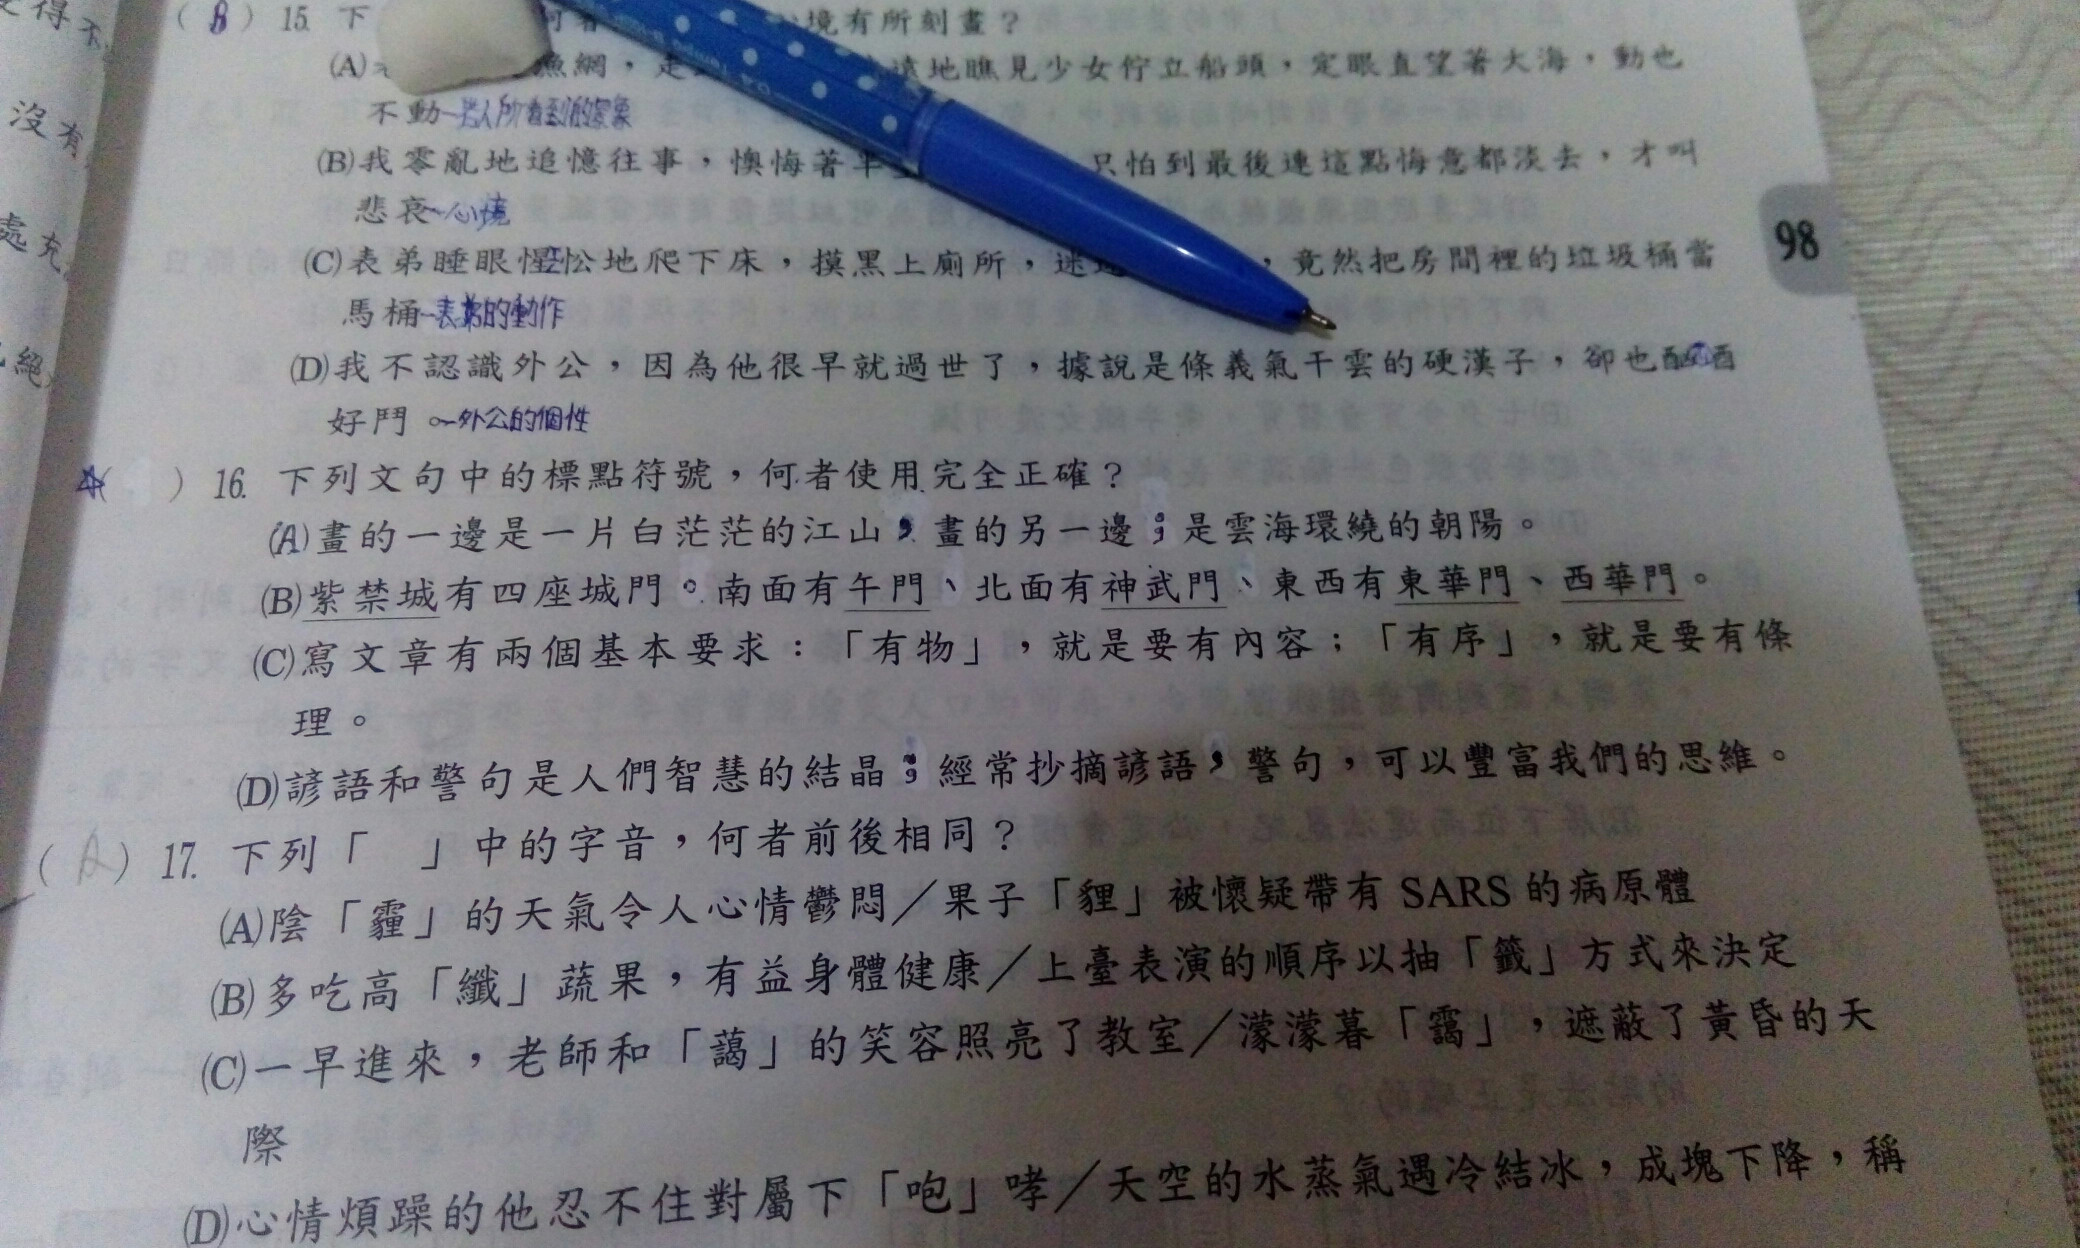 得不
沒有
處充
絕
98
(B) 15. 下 何者 境有所刻畫？
(A) 漁網，走 遠地瞧見少女佇立船頭，定眼直望著大海，動也
不動~别人所看到的景象
(B)我零亂地追憶往事，懊悔著半 只怕到最後連這點悔意都淡去，才叫
悲哀~心境
(C)表弟睡眼惺忪地爬下床，摸黑上廁所，迷 ，竟然把房間裡的垃圾桶當
馬桶~表弟的動作
(D)我不認識外公，因為他很早就過世了，據說是條義氣干雲的硬漢子，卻也酗酒
好鬥。~外公的個性
( ) 16. 下列文句中的標點符號，何者使用完全正確？
(A)畫的一邊是一片白茫茫的江山，畫的另一邊；是雲海環繞的朝陽。
(B)紫禁城有四座城門。南面有午門、北面有神武門、東西有東華門、西華門。
(C)寫文章有兩個基本要求：「有物」，就是要有內容；「有序」，就是要有條
理。
(D)諺語和警句是人們智慧的結晶；經常抄摘諺語，警句，可以豐富我們的思維。
(A) 17. 下列「　」中的字音，何者前後相同？
(A)陰「霾」的天氣令人心情鬱悶／果子「貍」被懷疑帶有 SARS 的病原體
(B)多吃高「纖」蔬果，有益身體健康／上臺表演的順序以抽「籤」方式來決定
(C)一早進來，老師和「藹」的笑容照亮了教室／濛濛暮「靄」，遮蔽了黃昏的天
際
(D)心情煩躁的他忍不住對屬下「咆」哮／天空的水蒸氣遇冷結冰，成塊下降，稱